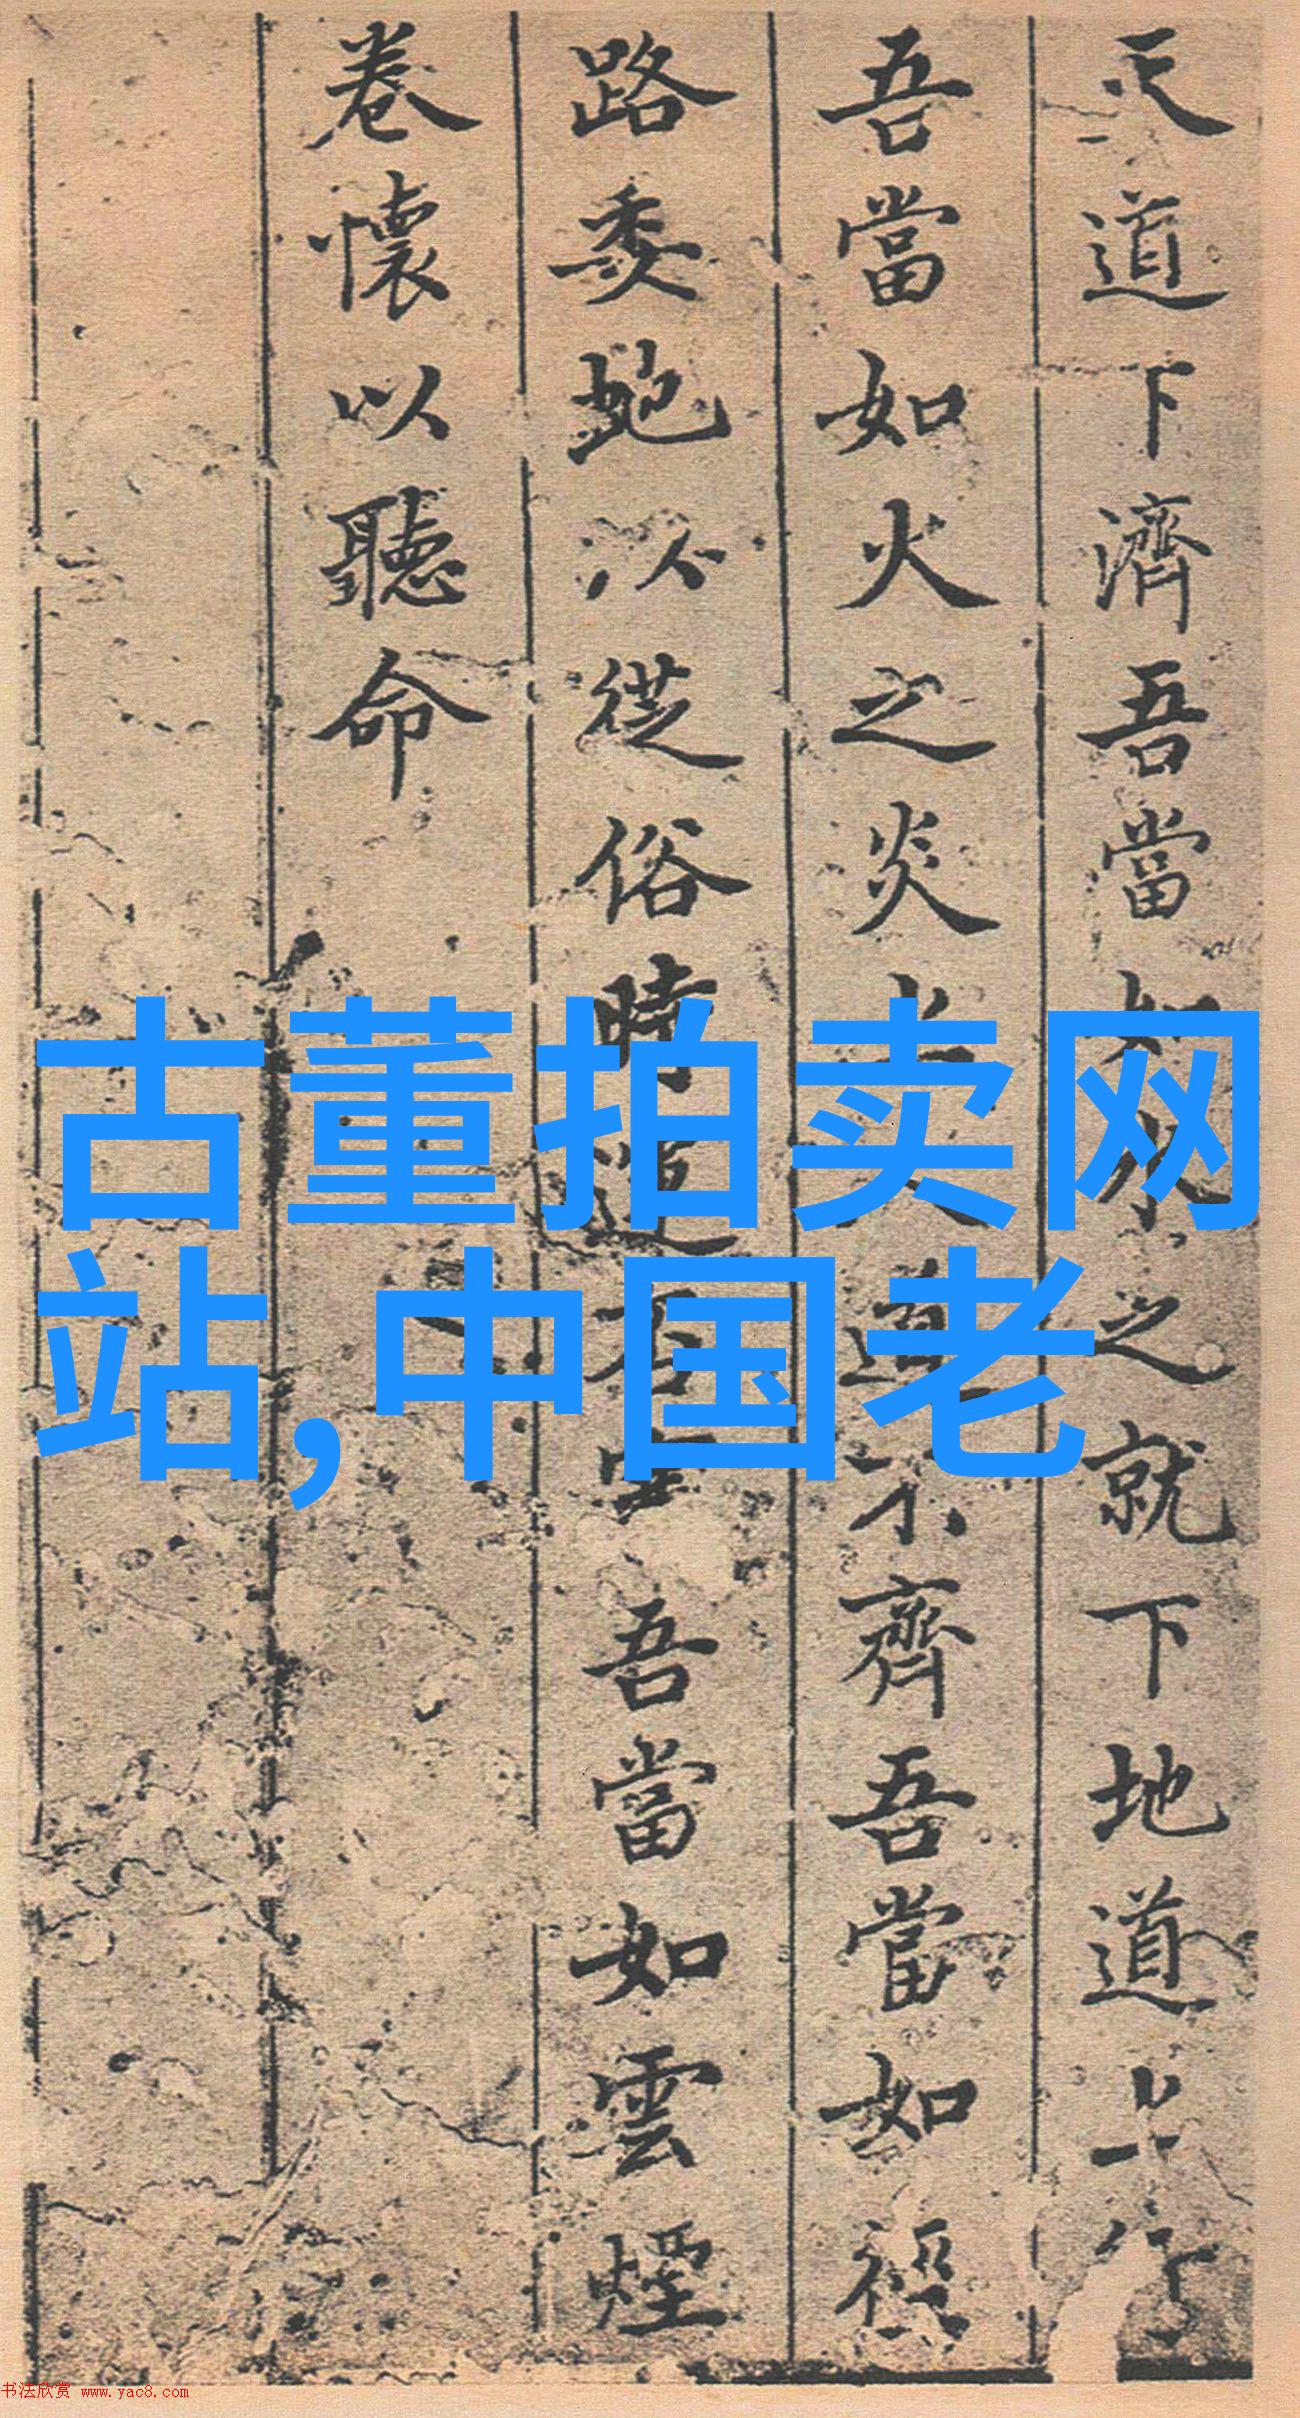 天道下濟吾當如水之就下地道上行
吾當如火之炎上人道不齊吾當如
路委蛇以從俗時道不 吾當如雲煙
卷懷以聽命
古董拍卖网
站,中国老
书法欣赏 www.yac8.com